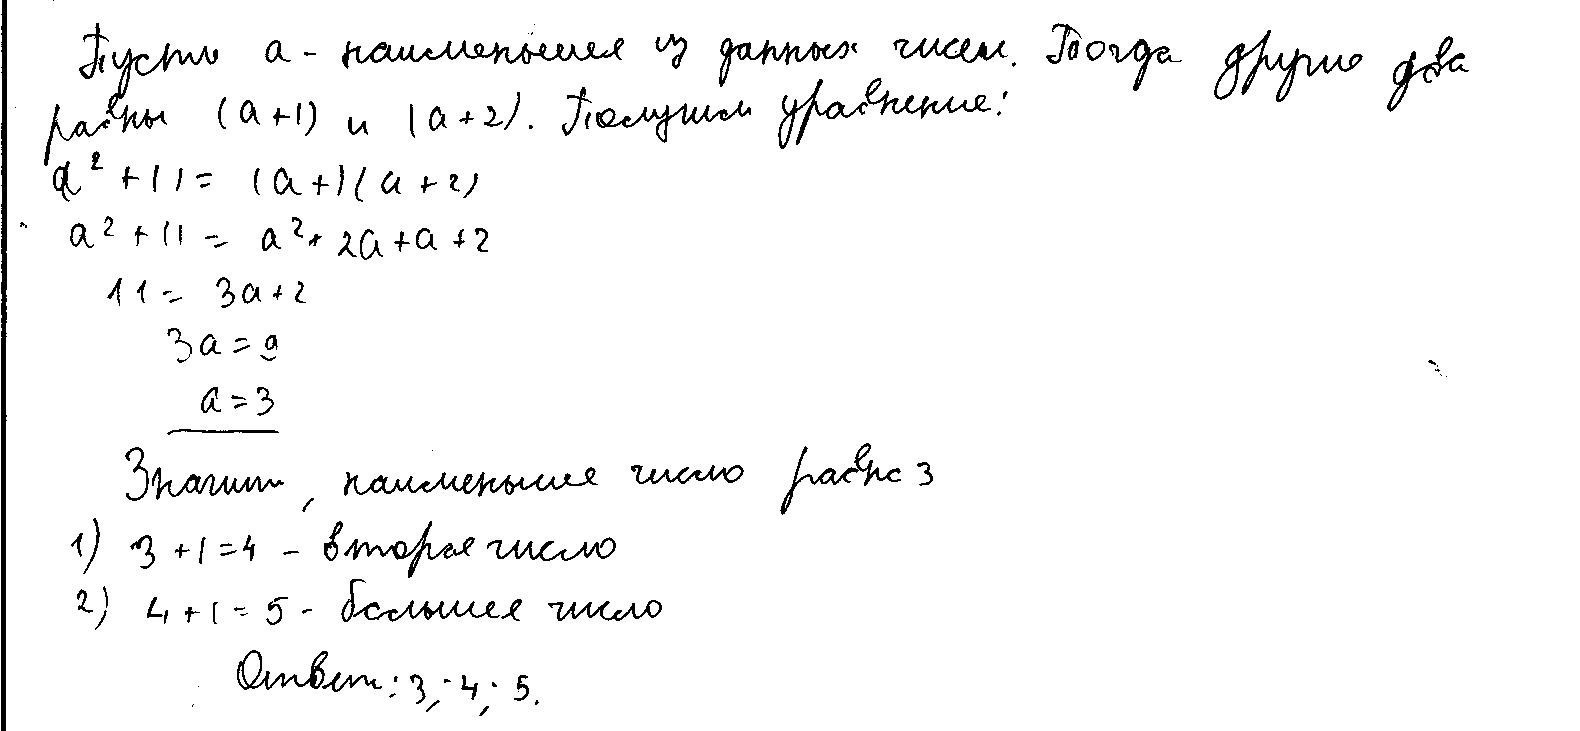 Пусть a - наименьшее из данных чисел. Тогда другие два
равны (a+1) и (a+2). Получим уравнение:
a² + 11 = (a+1)(a+2)
a² + 11 = a² + 2a + a + 2
11 = 3a + 2
3a = 9
a = 3
Значит, наименьшее число равно 3
1) 3 + 1 = 4 - второе число
2) 4 + 1 = 5 - большее число
Ответ: 3; 4; 5.